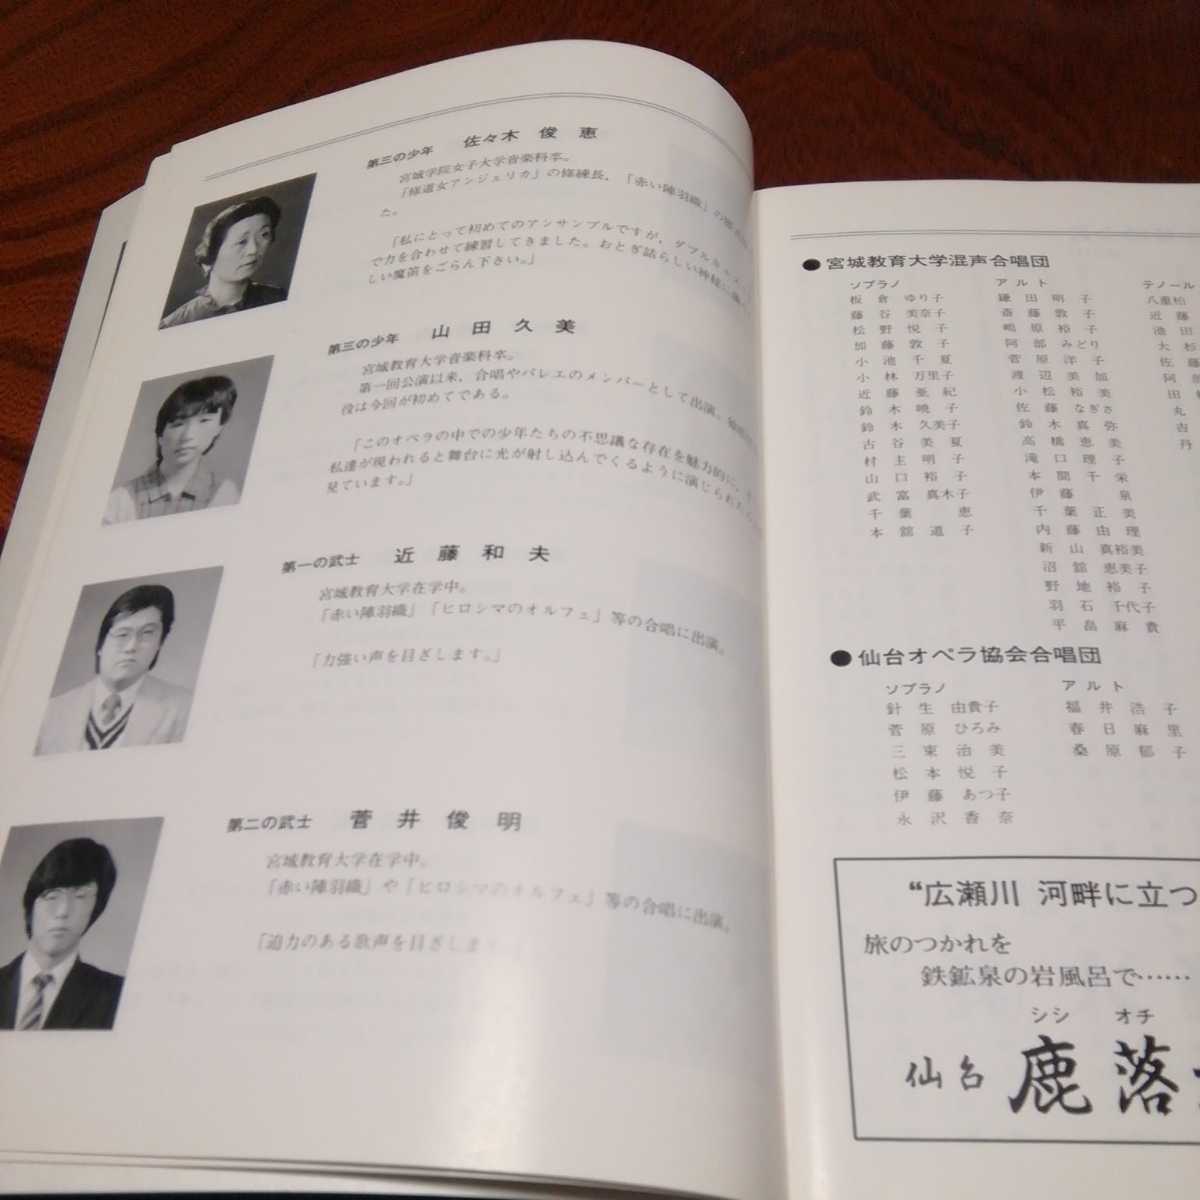 第三の少年 佐々木 俊 恵
宮城学院女子大学音楽科卒。
「修道女アンジェリカ」の修練長，「赤い陣羽織」の
た。
「私にとって初めてのアンサンブルですが，ダブルキャスト
で力を合わせて練習してきました。おとぎ話らしい
しい魔笛をごらん下さい。」
第三の少年 山 田 久 美
宮城教育大学音楽科卒。
第一回公演以来，合唱やバレエのメンバーとして出演。
役は今回が初めてである。
「このオペラの中での少年たちの不思議な存在を魅力的に，
私達が現われると舞台に光が射し込んでくるように演じられたら
見ています。」
第一の武士 近 藤 和 夫
宮城教育大学在学中。
「赤い陣羽織」「ヒロシマのオルフェ」等の合唱に出演。
「力強い声を目ざします。」
第二の武士 菅 井 俊 明
宮城教育大学在学中。
「赤い陣羽織」や「ヒロシマのオルフェ」等の合唱に出演。
「迫力のある歌声を目ざしま
●宮城教育大学混声合唱団
ソプラノ
板 倉 ゆり子
藤 谷 美奈子
松 野 悦 子
加 藤 敦 子
小 池 千 夏
小 林 万里子
近 藤 亜 紀
鈴 木 暁 子
鈴 木 久美子
古 谷 美 夏
村 主 明 子
山 口 裕 子
武 富 真木子
千 葉 恵
本 舘 道 子
アルト
鎌 田 明 子
斎 藤 敦 子
嶋 原 裕 子
阿 部 みどり
菅 原 洋 子
渡 辺 美 加
小 松 裕 美
佐 藤 なぎさ
鈴 木 真 弥
高 橋 恵 美
滝 口 理 子
本 間 千 栄
伊 藤 泉
千 葉 正 美
内 藤 由 理
新 山 真裕美
沼 舘 恵美子
野 地 裕 子
羽 石 千代子
平 畠 麻 貴
テノール
八重柏
近 藤
池 田
大 杉
佐 藤
阿 部
田
丸
吉
丹
●仙台オペラ協会合唱団
ソプラノ
針 生 由貴子
菅 原 ひろみ
三 東 治 美
松 本 悦 子
伊 藤 あつ子
永 沢 香 奈
アルト
福 井 浩 子
春 日 麻 里
桑 原 郁 子
“広瀬川 河畔に立つ
旅のつかれを
鉄鉱泉の岩風呂で……
シシ オチ
仙台 鹿落